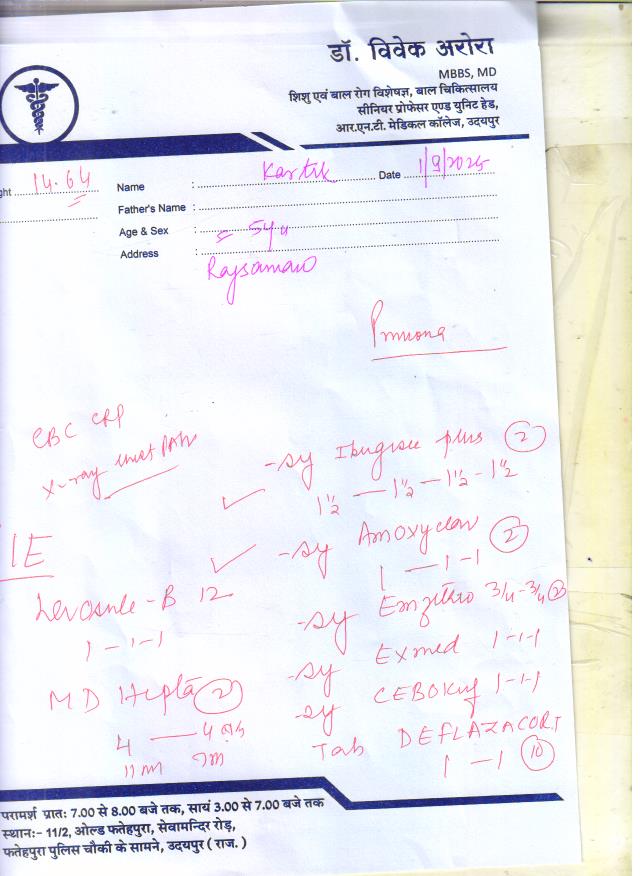 डॉ. विवेक अरोरा
MBBS, MD
शिशु एवं बाल रोग विशेषज्ञ, बाल चिकित्सालय
सीनियर प्रोफेसर एण्ड युनिट हेड,
आर.एन.टी. मेडिकल कॉलेज, उदयपुर
ght 14.64
Name : Kartik Date : 1/9/2025
Father's Name :
Age & Sex : 5y
Address :
CBC CRP
X-ray
-sy Ibugesic plus 2
1½ — 1½ — 1½ - 1½
-sy Amoxyclav 2
1 — 1 - 1
B 12
1 - 1 - 1
-sy 3/4 - 3/4
-sy Exmed 1-1-1
MD 2
-sy 1-1-1
4 — 4
Tab DEFLAZACORT
1 — 1 10
परामर्श प्रातः 7.00 से 8.00 बजे तक, सायं 3.00 से 7.00 बजे तक
स्थान:- 11/2, ओल्ड फतेहपुरा, सेवामन्दिर रोड़,
फतेहपुरा पुलिस चौकी के सामने, उदयपुर ( राज. )